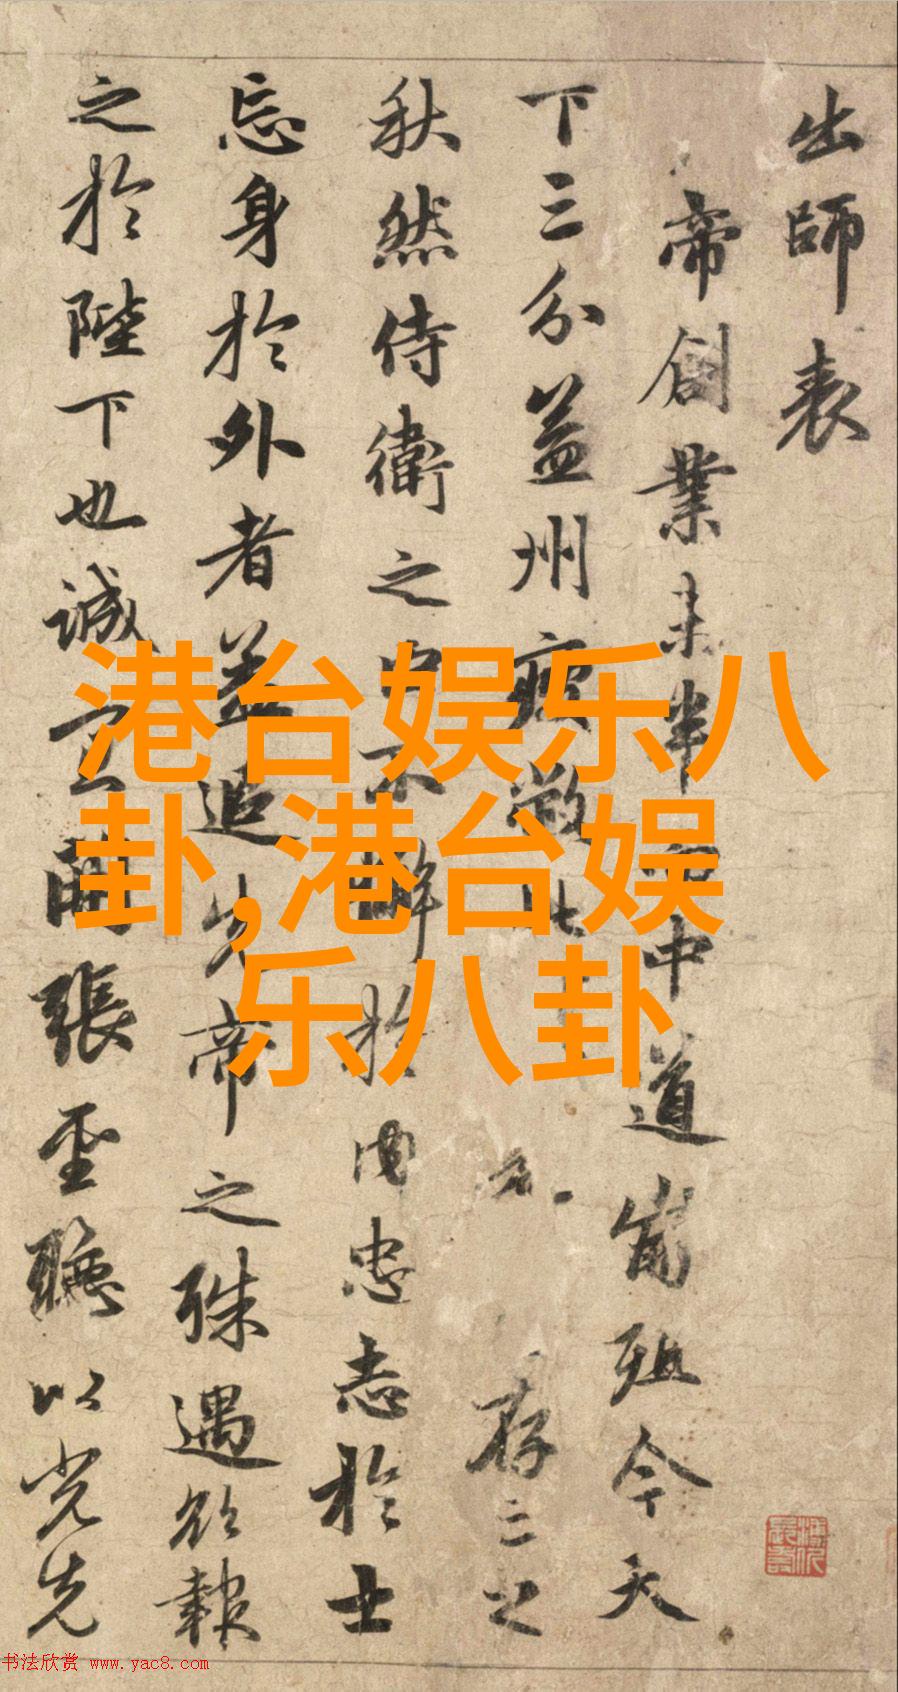 出師表
帝創業未半而中道崩殂今天
下三分益州疲敝此存亡之
秋然侍衛之臣不懈於内忠志於士
忘身於外者蓋追先帝之殊遇欲報
之於陛下也誠宜開張聖聽以光先
港台娱乐八
卦,港台娱
乐八卦
书法欣赏 www.yac8.com